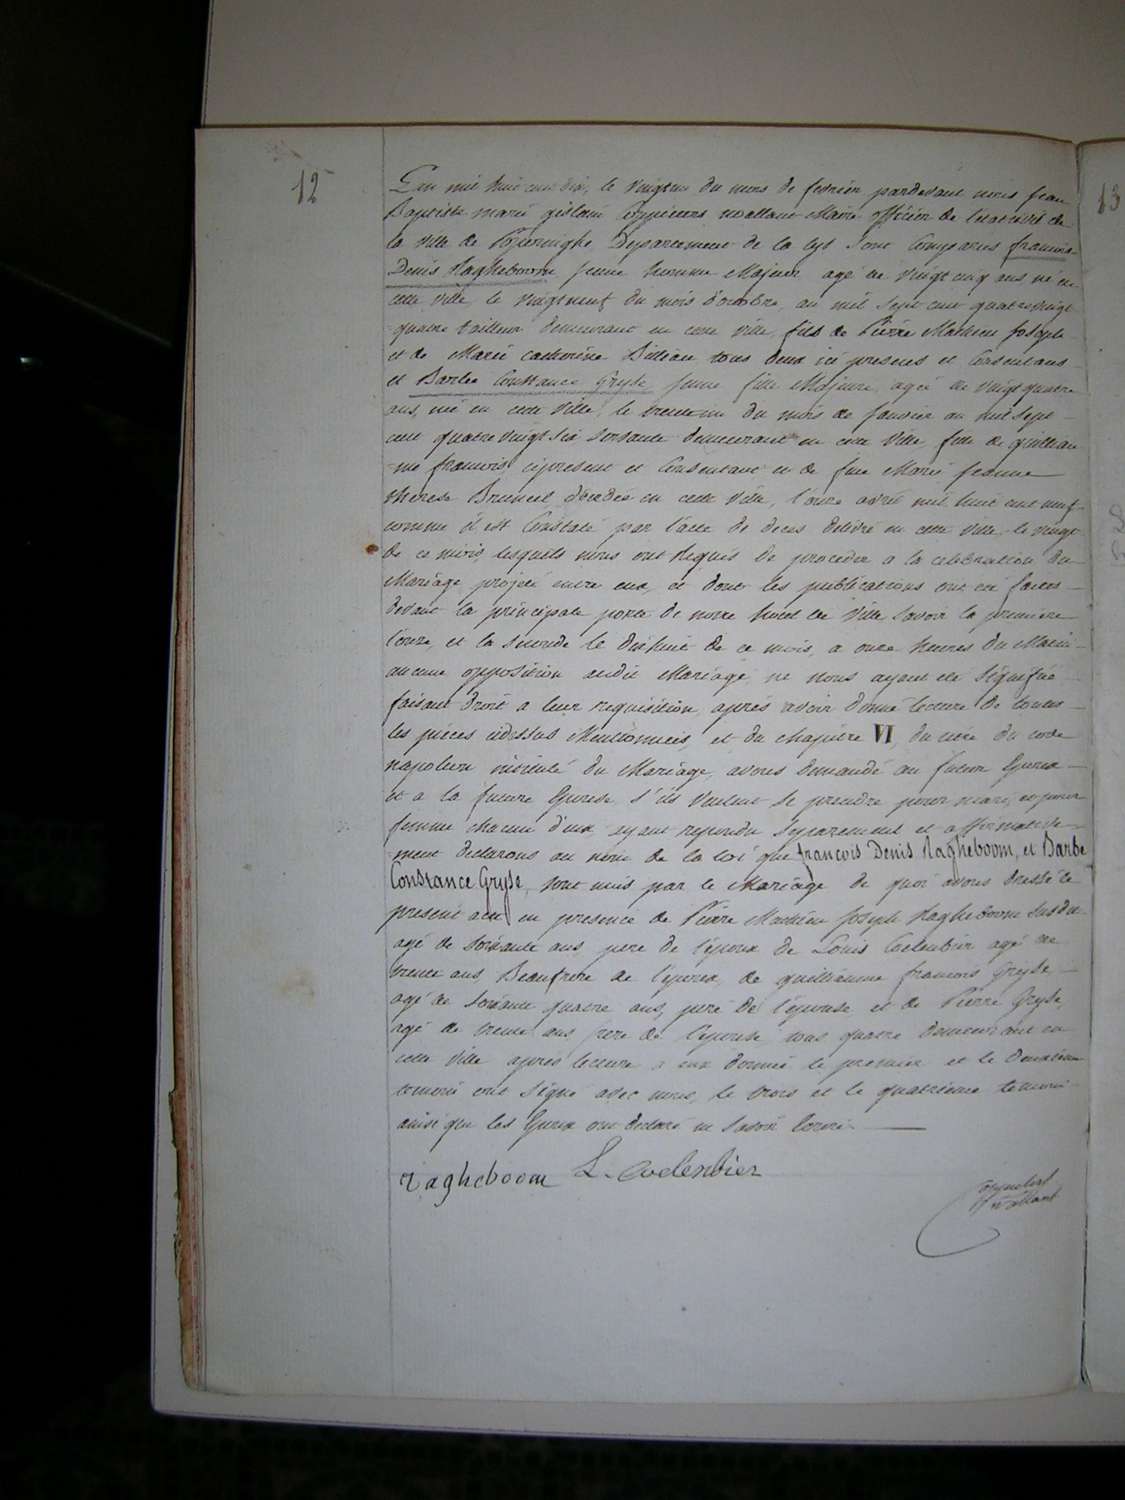 12
13
L'an mil huit cent dix, le vingtun du mois de fevrier pardevant nous Jean
Baptiste marie gislain Coppieters wallant Maire officier de l'etat civil de
la ville de Poperinghe Departement de la Lys sont Comparus françois
Denis Ragheboom jeune homme Majeur agé de vingt cinq ans né en
cette ville le vingtneuf du mois d'octobre an mil sept cent quatre vingt
quatre tailleur demeurant en cette ville, fils de Pierre Mathieu Joseph
et de Marie catherine tous deux ici presens et Consentans
et Barbe Constance Gryse jeune fille Majeure agée de vingt quatre
ans, née en cette ville, le trente un du mois de Janvier an mil sept
cent quatre vingt six servante demeurant en cette ville fille de guilliau
me francois ci present et Consentant et de feue Marie Jeanne
therese Bruneel décédée en cette ville, l'onze avril mil huit cent neuf
comme il est Constaté par l'acte de deces delivré en cette ville le vingt
de ce mois, lesquels nous ont Requis de proceder a la celebration du
Mariage projeté entre eux, et dont les publications ont été faites
devant la principale porte de notre hotel de ville savoir la premiere
l'onze, et la seconde le dishuit de ce mois, a onze heures du Matin
aucune opposition audit Mariage ne nous ayant été Signifiée
faisant droit a leur requisition, après avoir donné lecture de toutes
les pièces cidessus Mentionnées, et du chapitre VI du titre du code
napoleon intitulé du Mariage, avons demandé au futur Epoux
et a la future Epouse s'ils veulent se prendre pour mari, et pour
femme chacun d'eux ayant repondu Separement et affirmative
ment declarons au nom de la loi que francois Denis Ragheboom, et Barbe
Constance Gryse, sont unis par le Mariage de quoi avons dressé le
present acte en presence de Pierre Mathieu Joseph Ragheboom susdit
agé de soixante ans pere de l'époux de Louis Coelenbier agé de
trente ans Beaufrere de l'époux, de guilliaume francois Gryse
agé de soixante quatre ans, pere de l'épouse et de Pierre Gryse,
agé de trente ans frere de l'épouse tous quatre demeurant en
cette ville après lecture a eux donné le premier et le deuxième
temoin ont signé avec nous, le trois et le quatrième temoin
ainsi que les Epoux ont declaré ne savoir ecrire.
ragheboom L. Coelenbier
wallant